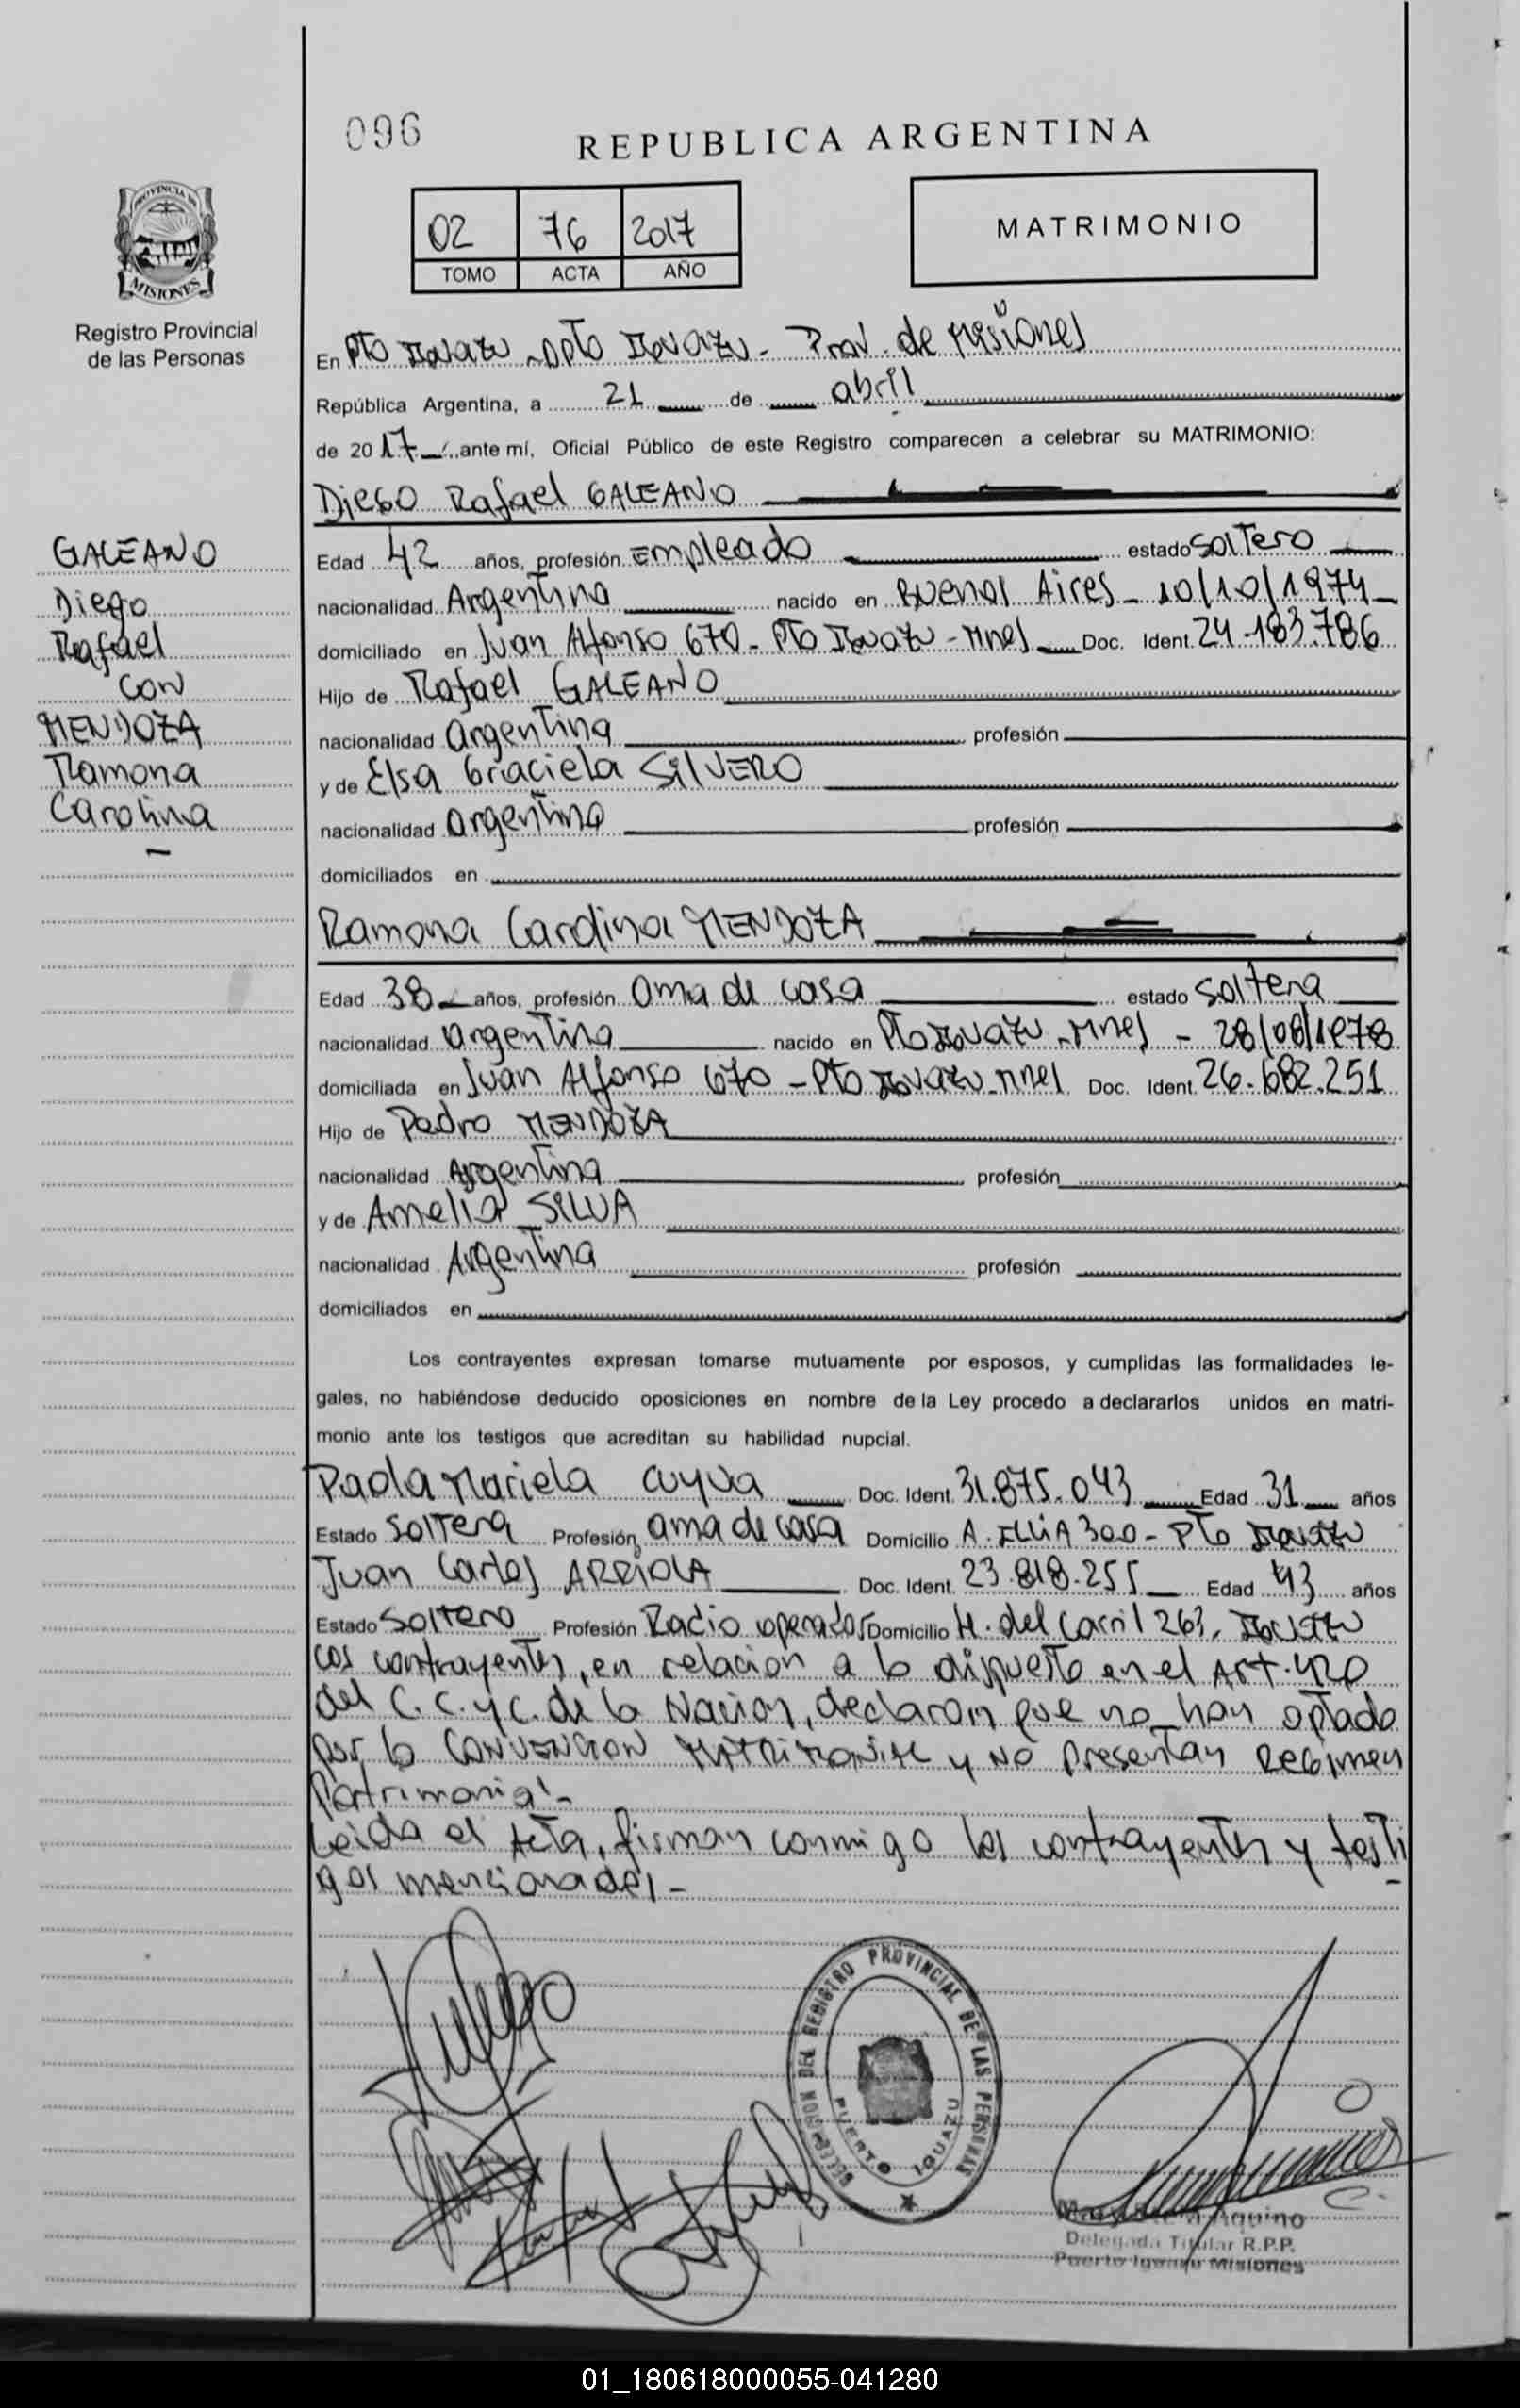 096
REPUBLICA ARGENTINA
02 76 2017
TOMO ACTA AÑO
MATRIMONIO
PROVINCIA DE
MISIONES
Registro Provincial
de las Personas
En Pto Iguazu - Dpto Iguazu - Prov. de Misiones
República Argentina, a 21 de abril
de 2017 ante mí, Oficial Público de este Registro comparecen a celebrar su MATRIMONIO:
Diego Rafael GALEANO
GALEANO
Diego
Rafael
con
MENDOZA
Ramona
Carolina
Edad 42 años, profesión Empleado estado soltero
nacionalidad Argentina nacido en Buenos Aires - 10/10/1974
domiciliado en Juan Alfonso 670 - Pto Iguazu - Mnes Doc. Ident. 24.183.786
Hijo de Rafael GALEANO
nacionalidad argentina profesión
y de Elsa Graciela SILVERO
nacionalidad argentina profesión
domiciliados en
Ramona Carolina MENDOZA
Edad 38 años, profesión ama de casa estado soltera
nacionalidad argentina nacido en Pto Iguazu - Mnes - 28/08/1978
domiciliada en Juan Alfonso 670 - Pto Iguazu - Mnes Doc. Ident. 26.682.251
Hijo de Pedro MENDOZA
nacionalidad Argentina profesión
y de Amelia SILVA
nacionalidad Argentina profesión
domiciliados en
Los contrayentes expresan tomarse mutuamente por esposos, y cumplidas las formalidades le-
gales, no habiéndose deducido oposiciones en nombre de la Ley procedo a declararlos unidos en matri-
monio ante los testigos que acreditan su habilidad nupcial.
Paola Mariela Doc. Ident. 31.875.043 Edad 31 años
Estado soltera Profesión ama de casa Domicilio A. ILLIA 300 - Pto Iguazu
Juan Carlos ARRIOLA Doc. Ident. 23.818.255 Edad 43 años
Estado soltero Profesión Radio operador Domicilio H. del Carril 263, Iguazu
Los contrayentes, en relacion a lo dispuesto en el Art. 420
del C.C. y C. de la Nacion, declaran que no han optado
por la CONVENCION MATRIMONIAL y NO presentan Regimen
Patrimonial -
Leida el Acta, firman conmigo los contrayentes y testi
gos mencionados -
DEL REGISTRO PROVINCIAL DE LAS PERSONAS
PUERTO IGUAZU
Aquino
Delegada Titular R.P.P.
Puerto Iguazu Misiones
01_180618000055-041280